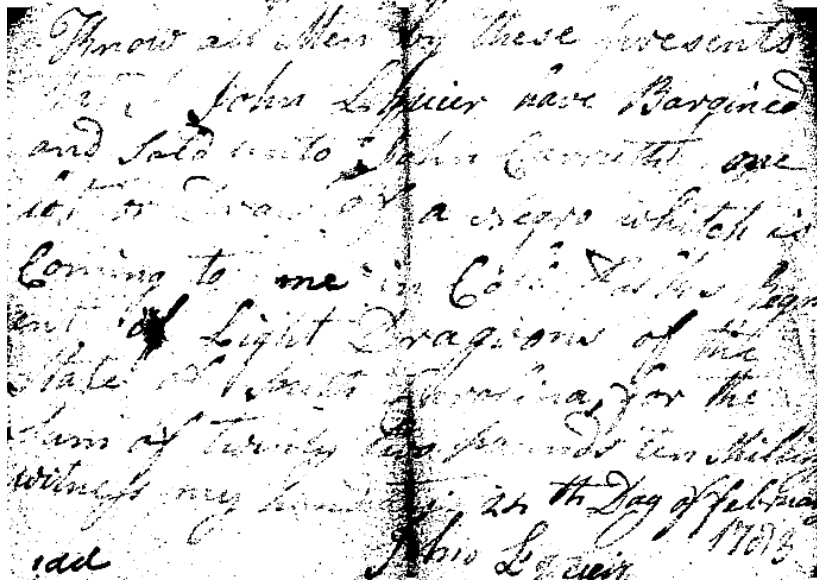 Know all Men by these presents
that I John Lquier have Bargined
and Sold unto John Carruth one
lot or Draw of a negro whitch is
Coming to me in Colo. Regm
ent of Light Dragions of the
State of South Carolina, for the
Sum of twenty two pounds ten Shilin
witness my hand 24th Day of february
1783
John Lquier